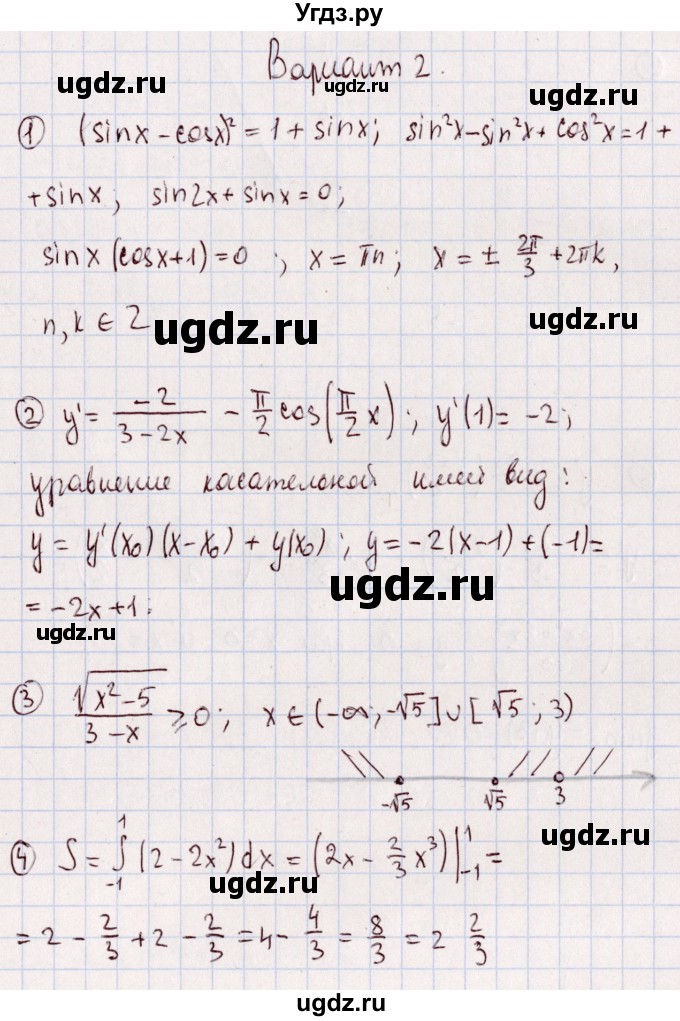 Угдз.ру
Вариант 2.
ugdz.ru ugdz.ru
① (sinx - cosx)² = 1 + sinx; sin²x - sin2x + cos²x = 1 +
+ sinx; sin2x + sinx = 0;
sinx (cosx + 1) = 0; x = πn; x = ± 2π/3 + 2πk,
n, k ∈ Z
ugdz.ru ugdz.ru
② y' = -2/(3 - 2x) - π/2 cos(π/2 x); y'(1) = -2;
ugdz.ru ugdz.ru
уравнение касательной имеет вид:
y = y'(x₀)(x - x₀) + y(x₀); y = -2(x - 1) + (-1) =
ugdz.ru
= -2x + 1.
ugdz.ru
③ √(x² - 5)/(3 - x) ≥ 0; x ∈ (-∞; -√5] ∪ [√5; 3)
ugdz.ru ugdz.ru
-√5 √5 3
④ S = ∫₋₁¹ (2 - 2x²) dx = (2x - 2/3 x³)|₋₁¹ =
ugdz.ru ugdz.ru
= 2 - 2/3 + 2 - 2/3 = 4 - 4/3 = 8/3 = 2 2/3
ugdz.ru